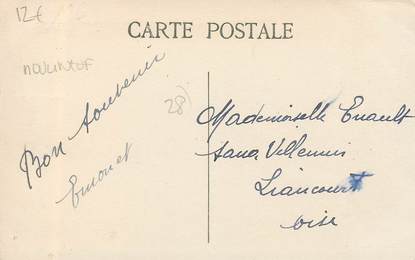 12€
CARTE POSTALE
28)
Bon Souvenir
Emonet
Mademoiselle Enault
Sana Villemin
Liancourt
Oise